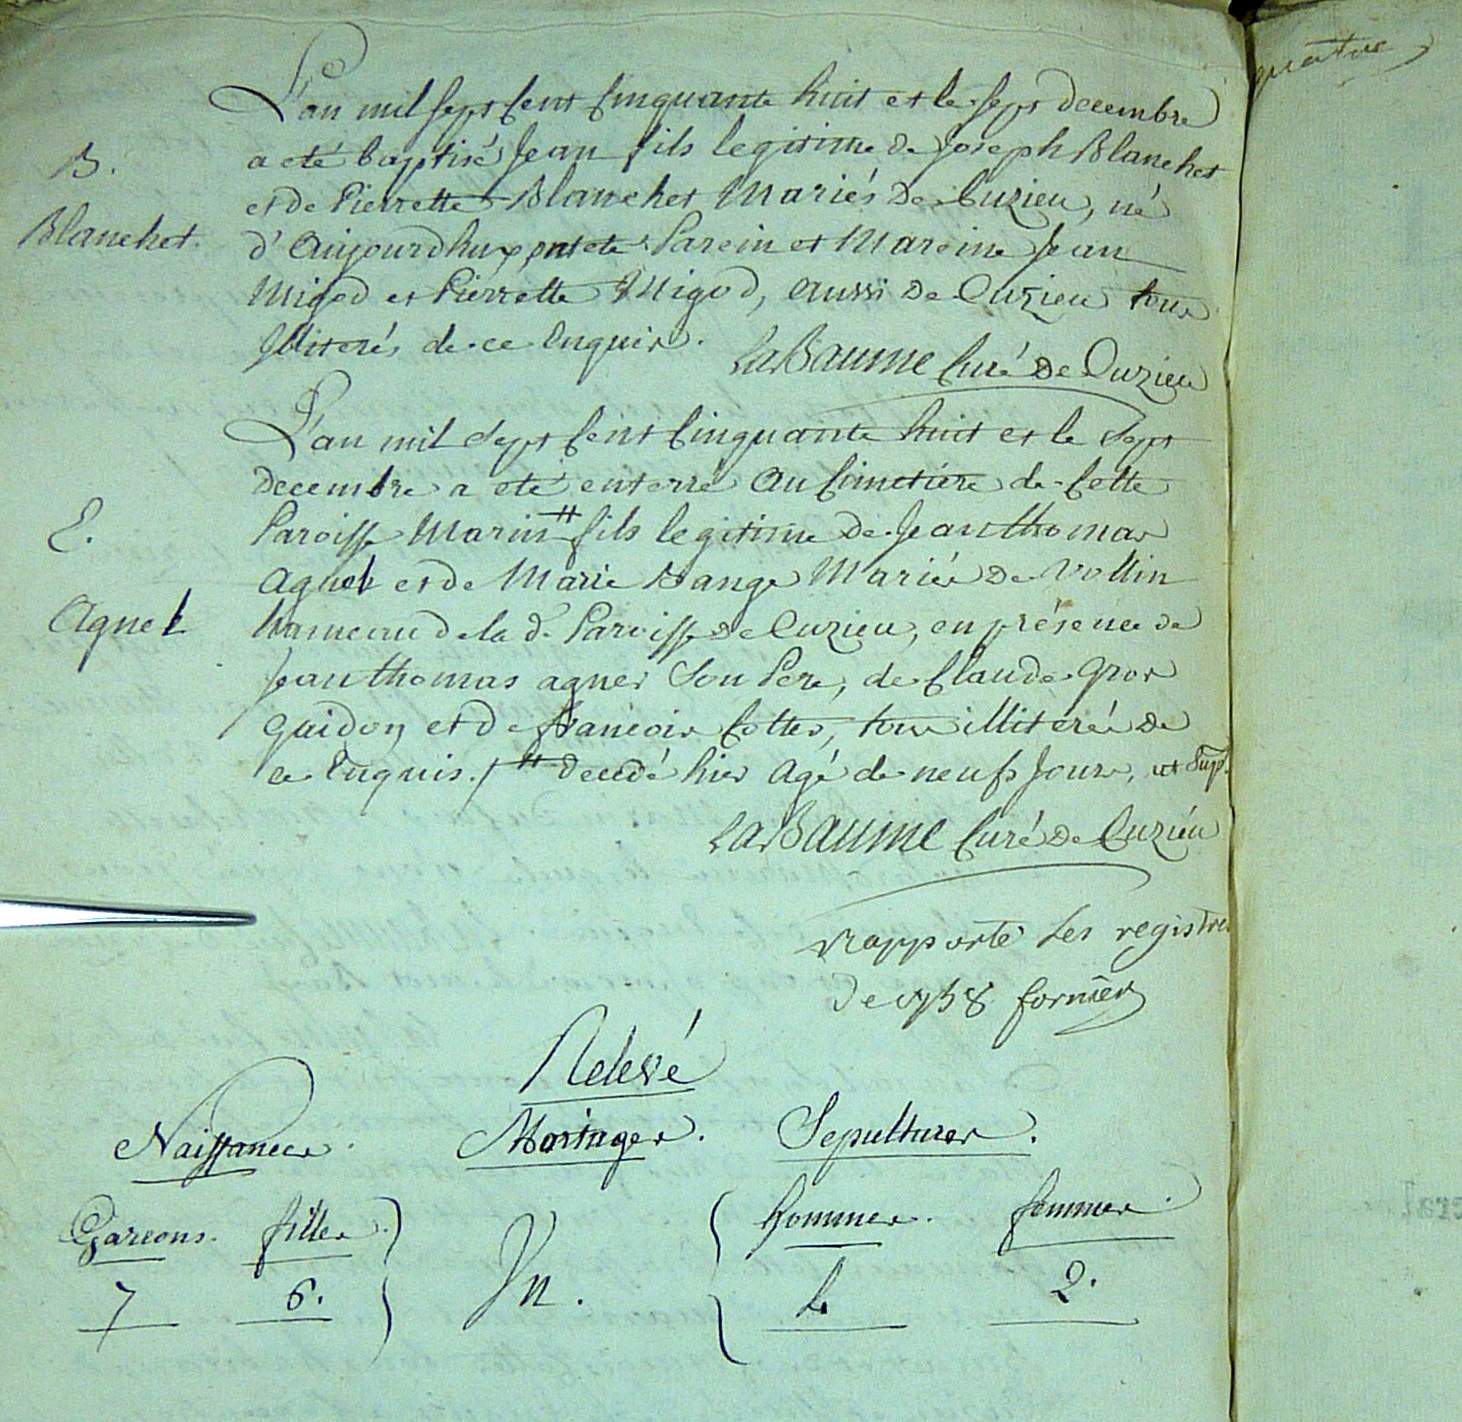 quatre
L'an mil sept cent cinquante huit et le sept decembre
B.
a eté baptisé Jean fils legitime de Joseph Blanchet
et de Pierrette Blanchet Mariés de Cuzieu, né
Blanchet.
d'aujourdhuy, ont eté Parein et Mareine Jean
Migod et Pierrette Migod, aussi de Cuzieu tous
Illiterés de ce Enquis.
LaBaume Curé de Cuzieu
L'an mil sept cent cinquante huit et le sept
decembre a eté enterré au Cimetiere de cette
E.
Paroisse Marin # fils legitime de Jean thomas
agnet et de Marie Mariés de Vollin
Agnet
hameau de la d. Paroisse de Cuzieu, en présence de
Jean thomas agnet son Pere, de Claude gros
guidon et de francois Cottet, tous illiterés de
ce Enquis. / # decedé hier agé de neufs Jours, ut Sup.
LaBaume Curé de Cuzieu
rapporté les registres
de 1758 fornier
Relevé
Naissances. Mariages. Sepultures.
Garcons. filles. hommes. femmes.
7 6. Un. 2.